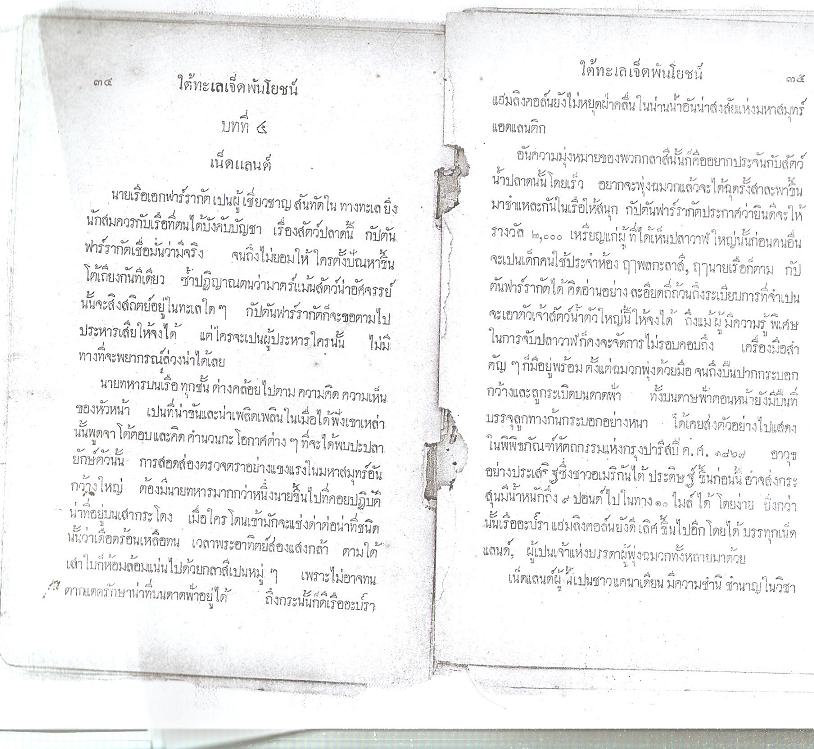 ๓๔
ใต้ทะเลเจ็ดพันโยชน์
บทที่ ๔
เน็ดแลนด์
นายเรือเอกฟาร์รากัต เปนผู้ เชี่ยวชาญ สันทัดใน ทางทะเล ยิ่ง
นักสมควรกับเรือที่ตนได้บังคับบัญชา เรื่องสัตว์ปลาตนี้ กัปตัน
ฟาร์รากัตเชื่อมั่นว่ามีจริง จนถึงไม่ยอมให้ ใครตั้งปัณหาขึ้น
โต้เถียงกันทีเดียว ซ้ำปฏิญาณตนว่ามาตร์แม้นสัตว์น่าอัศจรรย์
นั้นจะสิงสถิตย์อยู่ในทะเลใด ๆ กัปตันฟาร์รากัตก็จะขอตามไป
ประหารเสียให้จงได้ แต่ใครจะเปนผู้ประหารใครนั้น ไม่มี
ทางที่จะพยากรณ์ล่วงน่าได้เลย
นายทหารบนเรือ ทุกชั้น ต่างคล้อยไปตาม ความคิด ความเห็น
ของหัวหน้า เปนที่น่าขันและน่าเพลิดเพลินในเมื่อได้ฟังเขาเหล่า
นั้นพูดจา โต้ตอบ และคิด คำนวนกะโอกาศต่าง ๆ ที่จะได้พบปะปลา
ยักษ์ตัวนั้น การสอดส่องตรวจตราอย่างแขงแรงในมหาสมุทร์อัน
กว้างใหญ่ ต้องมีนายทหารมากกว่าหนึ่งนายขึ้นไปที่คอยปฏิบัติ
น่าที่อยู่บนเสากระโดง เมื่อใครโดนเข้ามักจะแช่งด่าต่อน่าที่ชนิด
นั้นว่าเดือดร้อนเหลือทน เวลาพระอาทิตย์ส่องแสงกล้า ตามใต้
เสาใบก็ห้อมล้อมแน่นไปด้วยกลาสีเปนหมู่ ๆ เพราะไม่อาจทน
ตากแดดรักษาน่าที่บนดาดฟ้าอยู่ได้ ถึงกระนั้นก็ดีเรืออะบ์รา
ใต้ทะเลเจ็ดพันโยชน์
๓๕
แฮ่มลิงคอล์นยังไม่หยุดฝ่าคลื่น ในน่านน้ำอันน่าสงสัยแห่งมหาสมุทร์
แอตแลนติก
อันความมุ่งหมายของพวกกลาสีนั้นก็คืออยากประจันกับสัตว์
น้ำปลาดนั้นโดยเร็ว อยากจะพุ่งฉมวกแล้วจะได้ฉุดรั้งสำละพาขึ้น
มาชำแหละกันในเรือให้สนุก กัปตันฟาร์รากัตประกาศว่ายินดีจะให้
รางวัล ๒,๐๐๐ เหรียญแก่ผู้ ที่ได้เห็นปลาวาฬ ใหญ่นั้นก่อนคนอื่น
จะเปนเด็กคนใช้ประจำห้อง ฤๅพลกะลาสี, ฤๅนายเรือก็ตาม กัป
ตันฟาร์รากัตได้ คิดอ่านอย่าง ละเอียดถี่ถ้วนถึงระเบียบการที่จำเปน
จะเอาตัวเจ้าสัตว์น้ำตัวใหญ่นี้ให้จงได้ ถึงแม้ ผู้ มีความรู้ พิเศษ
ในการจับปลาวาฬ ก็คงจะจัดการ ไม่รอบคอบถึง เครื่องมือสำ
คัญ ๆ ก็มีอยู่พร้อม ตั้งแต่ฉมวกพุ่งด้วยมือ จนถึงปืนปากกระบอก
กว้างและลูกระเบิดบนดาดฟ้า ทั้งบนดาษฟ้าตอนหน้ายังมีปืนที่
บรรจุลูกทางก้นกระบอกอย่างหนา ได้เคยส่งตัวอย่างไปแสดง
ในพิพิธภัณฑ์หัตถกรรมแห่งกรุงปารีสปี ค.ศ. ๑๘๖๗ อาวุธ
อย่างประเสริฐซึ่งชาวอเมริกันได้ ประดิษฐ์ ขึ้นก่อนนี้ อาจส่งกระ
สุนมีน้ำหนักถึง ๙ ปอนด์ ไปในทาง ๑๐ ไมล์ ได้ โดยง่าย ยิ่งกว่า
นั้นเรืออะบ์รา แฮ่มลิงคอล์นยังดี เลิศ ขึ้นไปอีก โดยได้ บรรทุกเน็ด
แลนด์, ผู้เปนเจ้าแห่งบรรดาผู้พุ่งฉมวกทั้งหลายมาด้วย
เน็ดแลนด์ผู้ นี้เปนชาวแคนาเดียน มีความชำนิ ชำนาญ ในวิชา